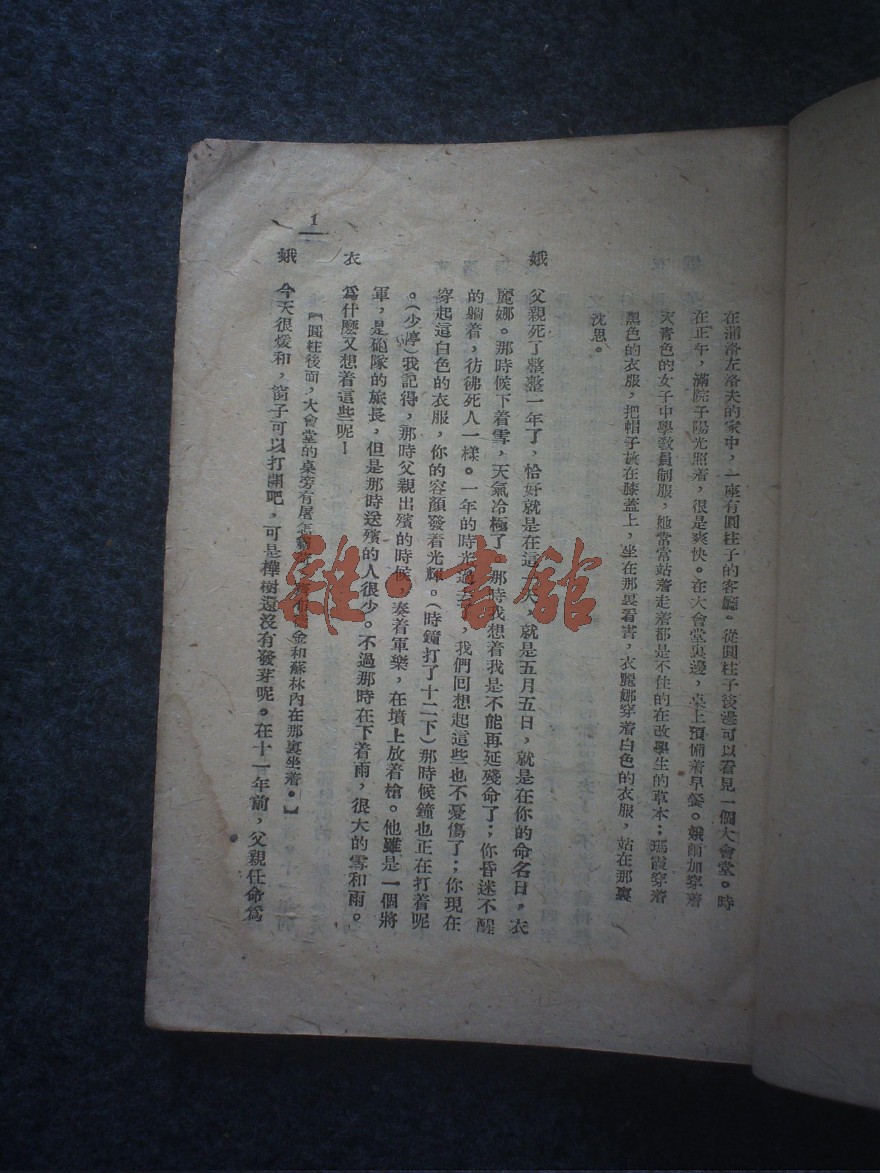 在浦洛左洛夫的家中，一座有圓柱子的客廳。從圓柱子後邊可以看見一個大會堂。時
在正午，滿院子陽光照着，很是爽快。在大會堂裏邊，桌上預備着早餐。娥加穿着
天青色的女子中學敎員制服，她常常站着走着都是不住的在改學生的草本；瑪霞穿着
黑色的衣服，把帽子放在膝蓋上，坐在那裏看書，衣麗娜穿着白色的衣服，站在那裏
沈思。
娥　父親死了整整一年了，恰好就是在這，就是五月五日，就是在你的命名日，衣
麗娜。那時候下着雪，天氣冷極了。那時我想着我是不能再延殘命了；你昏迷不醒
的躺着，彷彿死人一樣。一年的時光過去了，我們回想起這些也不憂傷了；你現在
穿起這白色的衣服，你的容顏發着光輝。（時鐘打了十二下）那時候鐘也正在打着呢
。（少停）我記得，那時父親出殯的時候，奏着軍樂，在墳上放着槍。他雖是一個將
軍，是砲隊的旅長，但是那時送殯的人很少。不過那時在下着雨，很大的雪和雨。
衣　爲什麼又想着這些呢！
【圓柱後面，大會堂的桌旁有屠金和蘇林內在那裏坐着。】
娥　今天很煖和，窗子可以打開吧，可是樺樹還沒有發芽呢。在十一年前，父親任命爲
1
雜·書館